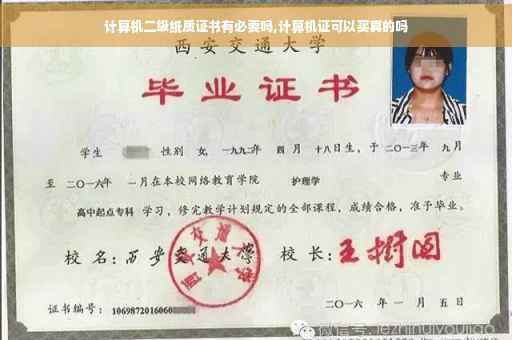 计算机二级纸质证书有必要吗,计算机证可以买真的吗
西安交通大学
毕业证书
学生 性别 女, 一九九二年 四 月 十八日生, 于 二〇一三年 九 月
至 二〇一六年 一月在本校网络教育学院 护理学 专业
高中起点专科 学习, 修完教学计划规定的全部课程, 成绩合格, 准予毕业。
校 名: 西安交通大学 校 长: 王树国
西安交通大学
证书编号: 1069872016060
二〇一六 年 一 月 五 日
微信号: jiezhihuiyoujiao